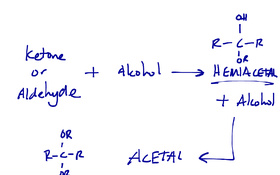 OH
R-C-R
OR
Ketone
or
Aldehyde
+ Alcohol
HEMIACETAL
+ Alcohol
OR
R-C-R
OR
ACETAL